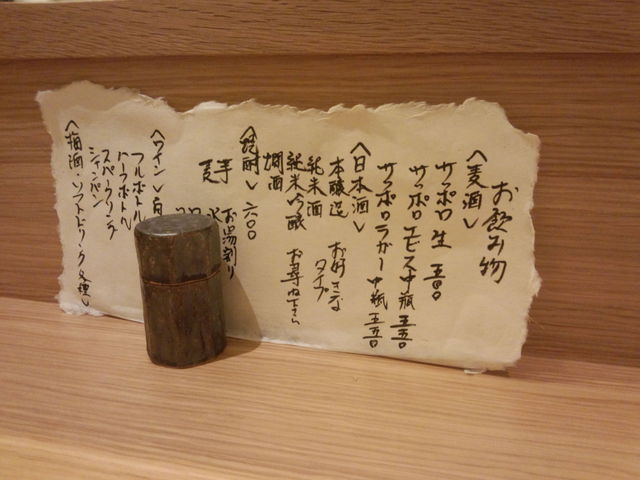 お飲み物
〈麦酒〉
サッポロ 生 五四〇
サッポロ エビス中瓶 五五〇
サッポロラガー中瓶 五五〇
〈日本酒〉
本醸造 お好きな
純米酒 タイプ
純米吟醸 お尋ね下さい
燗酒
〈焼酎〉 六〇〇
芋 お湯割り
麦 水
〈ワイン〉白
フルボトル
ハーフボトル
スパークリング
シャンパン
〈梅酒・ソフトドリンク各種〉